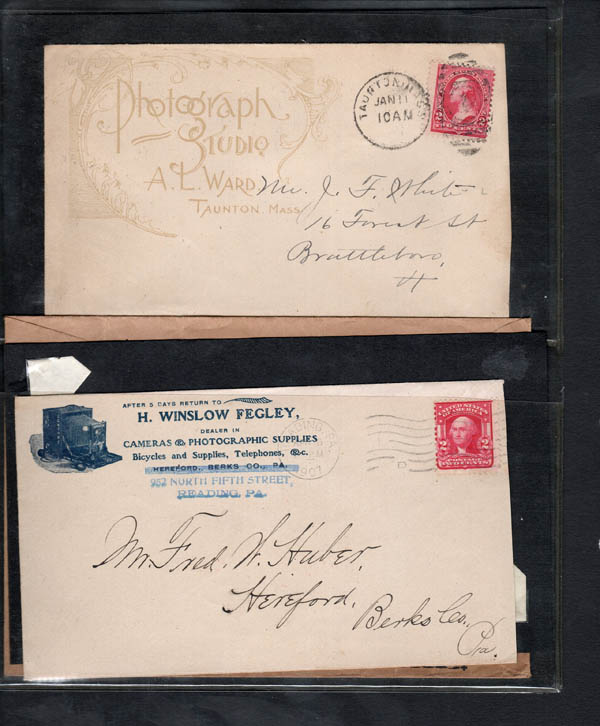 Photograph
Studio
A. L. Ward,
Taunton. Mass
TAUNTON MASS
JAN 11
10 AM
Mr. J. F. White
16 Forest St
Brattleboro,
Vt
AFTER 5 DAYS RETURN TO
H. WINSLOW FEGLEY,
DEALER IN
CAMERAS & PHOTOGRAPHIC SUPPLIES
Bicycles and Supplies, Telephones, &c.
HEREFORD, BERKS CO., PA.
952 NORTH FIFTH STREET,
READING, PA.
READING, PA.
1907
UNITED STATES
OF AMERICA
2 2
POSTAGE
TWO CENTS
Mr. Fred. W. Huber,
Hereford,
Berks Co.,
Pa.